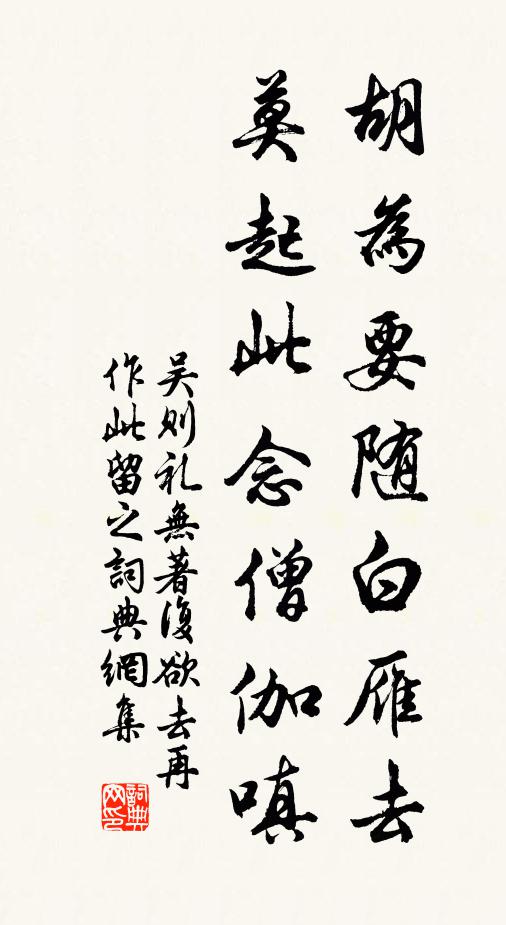 胡為要随白雁去
莫起此念僧伽嗔
吴则礼無著復欲去再
作此留之詞典網集
詞典網印